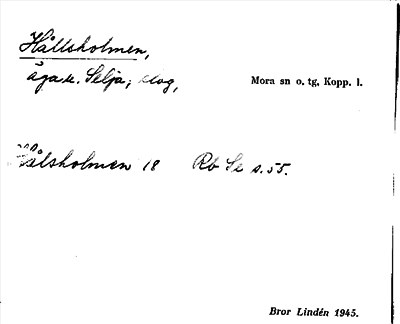 Hållsholmen,
ägare. Selja; skog, Mora sn o. tg. Kopp. l.
Hålsholmen 18 Rb Se s. 55.
Bror Lindén 1945.